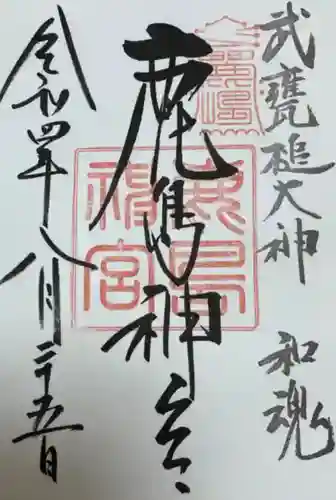 武甕槌大神　和魂
鹿島神宮
鹿島神宮
令和四年八月二十五日